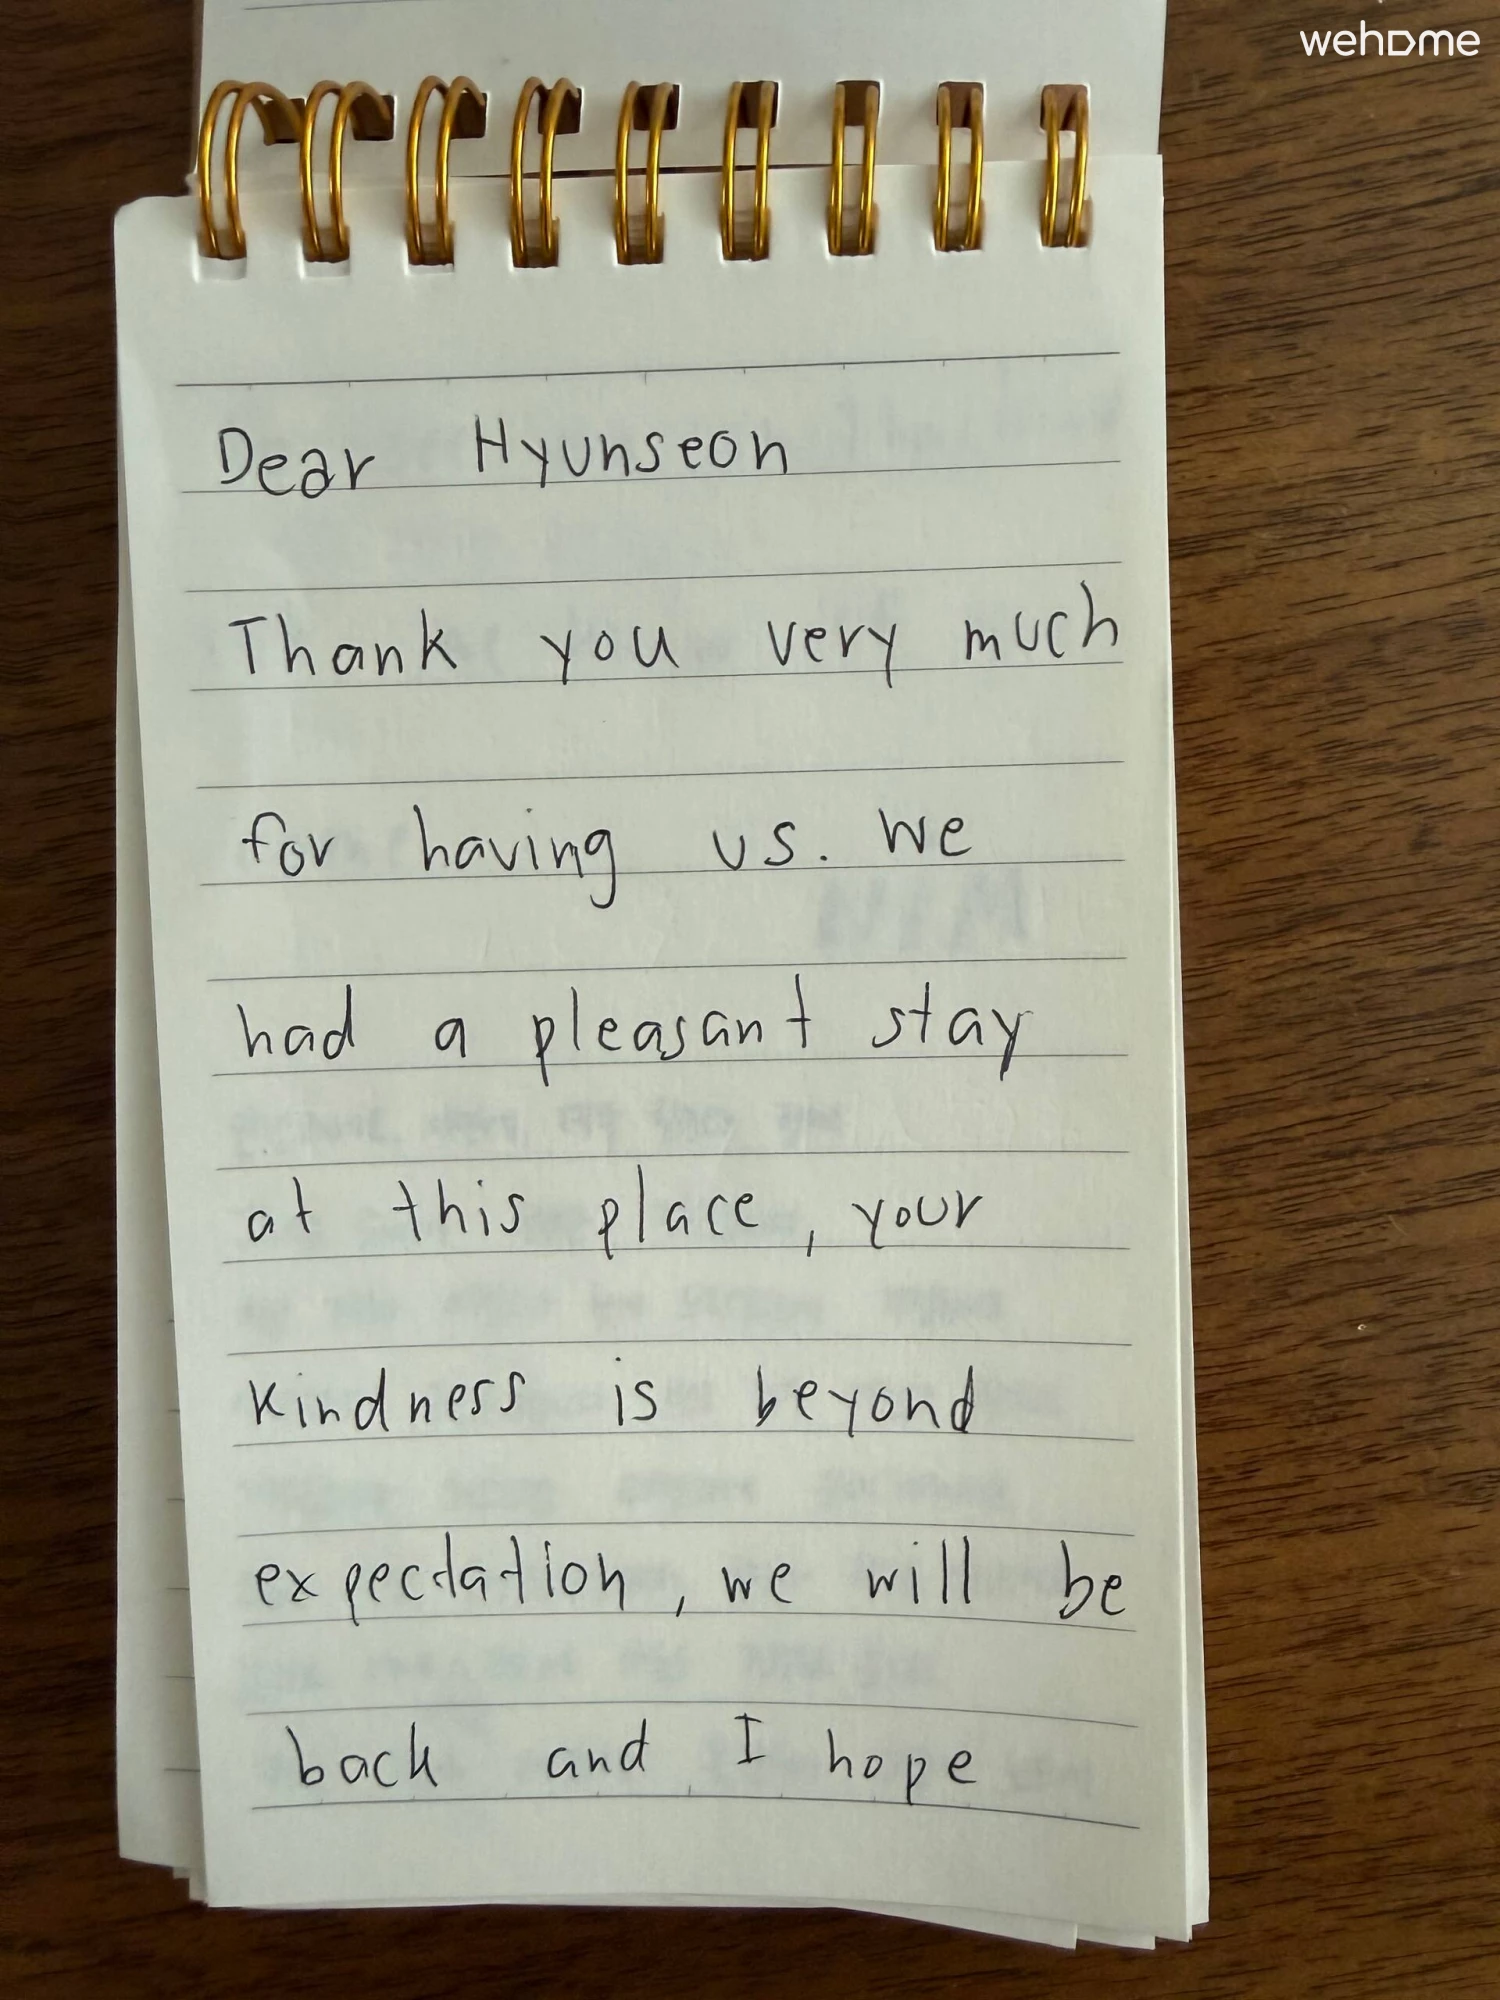 wehome
Dear Hyunseon
Thank you very much
for having us. We
had a pleasant stay
at this place, your
kindness is beyond
expectation, we will be
back and I hope